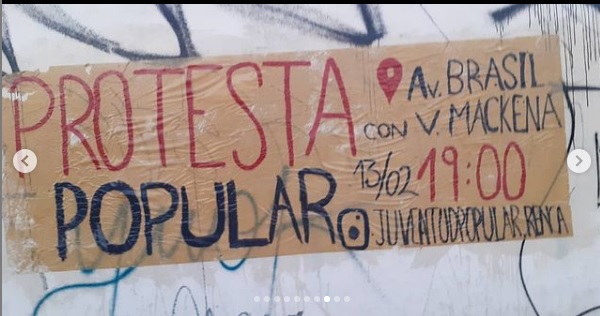 PROTESTA
POPULAR
Av. BRASIL
CON V. MACKENA
13/02 19:00
JUVENTUDPOPULAR.RENCA